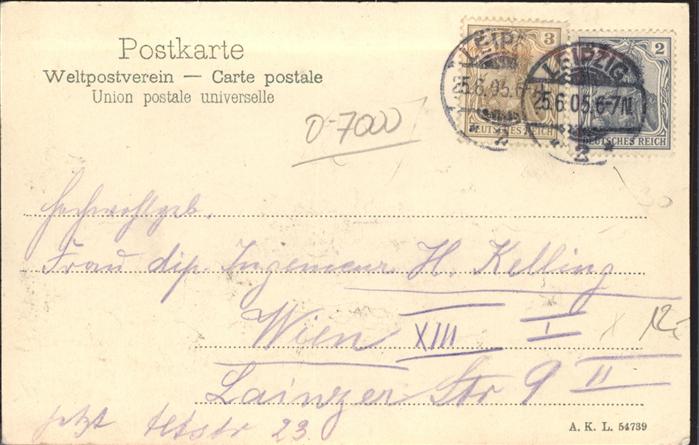 Postkarte
Weltpostverein — Carte postale
Union postale universelle
3
DEUTSCHES REICH
2
DEUTSCHES REICH
LEIPZIG
25.6.05.6-7N
2
LEIPZIG
25.6.05.6-7N
2
0-7000
Hochwohlgeb.
Frau dip. Ingenieur H. Kelling
Wien XIII I
12.-
Lainzer Str 9 II
jetzt 23.
A. K. L. 54739